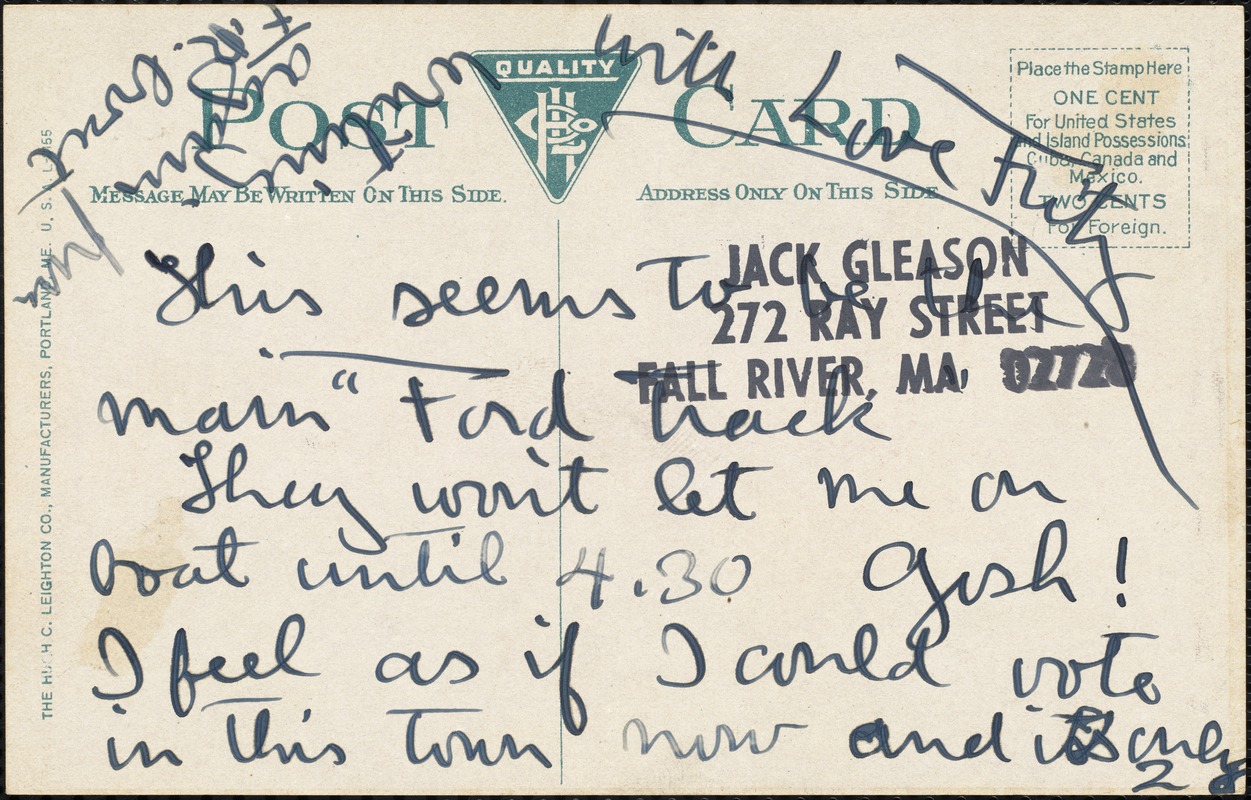 QUALITY
POST CARD
MESSAGE MAY BE WRITTEN ON THIS SIDE.
ADDRESS ONLY ON THIS SIDE
Place the Stamp Here
ONE CENT
For United States
and Island Possessions
Cuba, Canada and
Mexico.
TWO CENTS
For Foreign.
JACK GLEASON
272 RAY STREET
FALL RIVER, MA, 02720
This seems to be the
main "Ford track
They won't let me on
boat until 4.30 Gosh!
I feel as if I could vote
in this town now and its only
2
town
with Love Fritz
THE HUGH C. LEIGHTON CO., MANUFACTURERS, PORTLAND, ME. U. S. A.